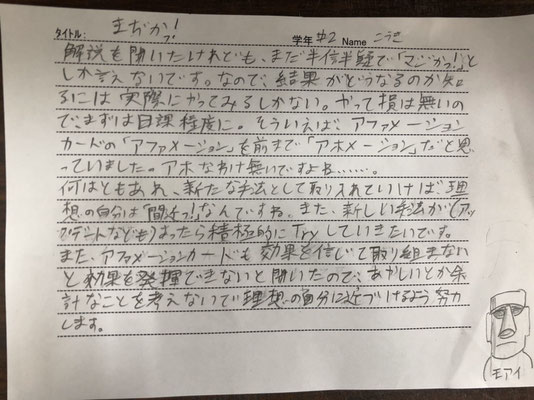 タイトル: まぢか! 学年 中2 Name こうき
解説を聞いたけれども、まだ半信半疑で「マジかっ!」と
しか言えないです。なので、結果がどうなるのか知
るには実際にやってみるしかない。やって損は無いの
で、まずは日課程度に。そういえば、アファメーション
カードの「アファメーション」を前まで「アホメーション」だと思
っていました。アホなわけ無いですよね……。
何はともあれ、新たな手法として取り入れていけば理
想の自分は「間近っ!」なんですね。また、新しい手法が(アッ
プデートなども)あったら積極的にTryしていきたいです。
また、アファメーションカードも効果を信じて取り組まない
と効果を発揮できないと聞いたので、あやしいとか余
計なことを考えないで理想の自分に近づけるよう努力
します。
モアイ